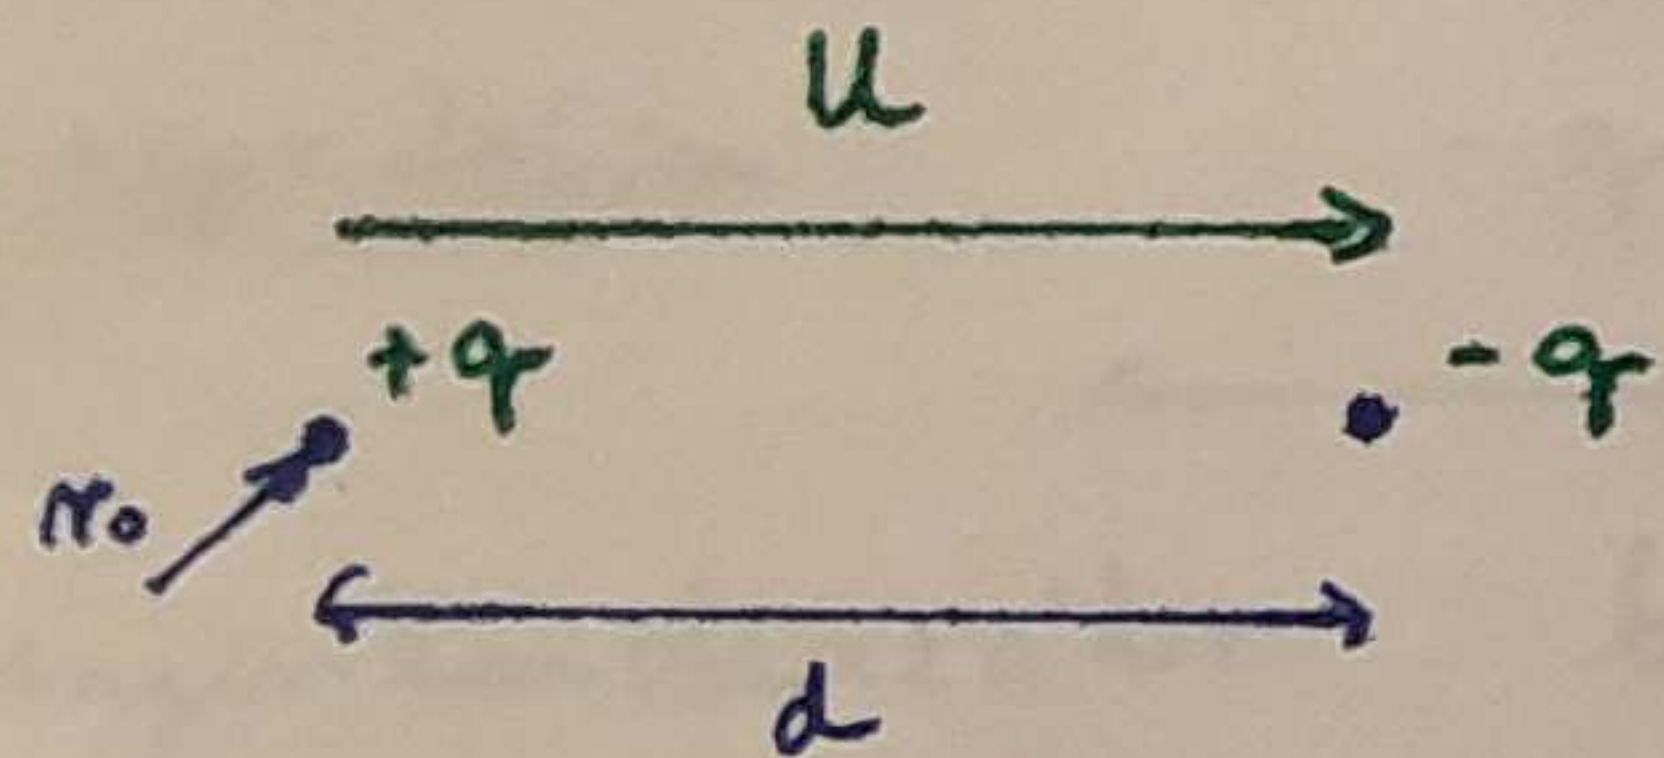 U
+q
-q
r₀
d